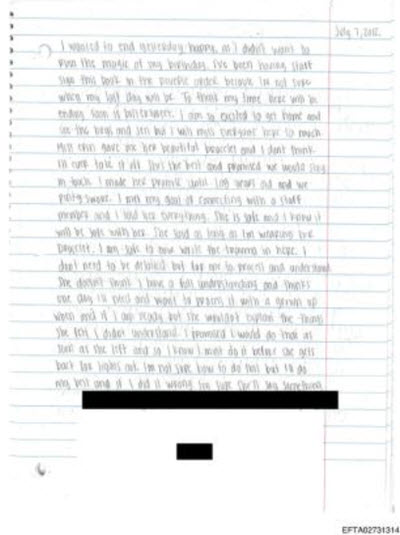 July 7, 2012
I wanted to end yesterday happy, as I didn't want to
ruin the magic of my birthday. I've been having staff
sign this book in the order because I'm not sure
when my last day will be. To think my time here will be
ending soon is bittersweet. I am so excited to get home and
see the and but I will miss everyone here so much.
Miss gave me her beautiful bracelet and I don't think
I'll ever take it off. She's the best and promised we would stay
in touch. I made her promise until 109 years old and we
pinky swore. I met my goal of connecting with a staff
member and I told her everything. She is safe and I know it
will be safe with her. She said as long as I'm wearing the
bracelet, I am safe to now write the trauma in here. I
don't need to be detailed but for me to process and understand.
She doesn't think I have a full understanding and thinks
one day I'll need and want to process it with a grown up
when and if I am ready but she wouldn't explain the things
she felt I didn't understand. I promised I would do that as
soon as she left and so I know I must do it before she gets
back for lights out. I'm not sure how to do that but I'll do
my best and if I did it wrong I'm sure she'll say something.
EFTA02731314